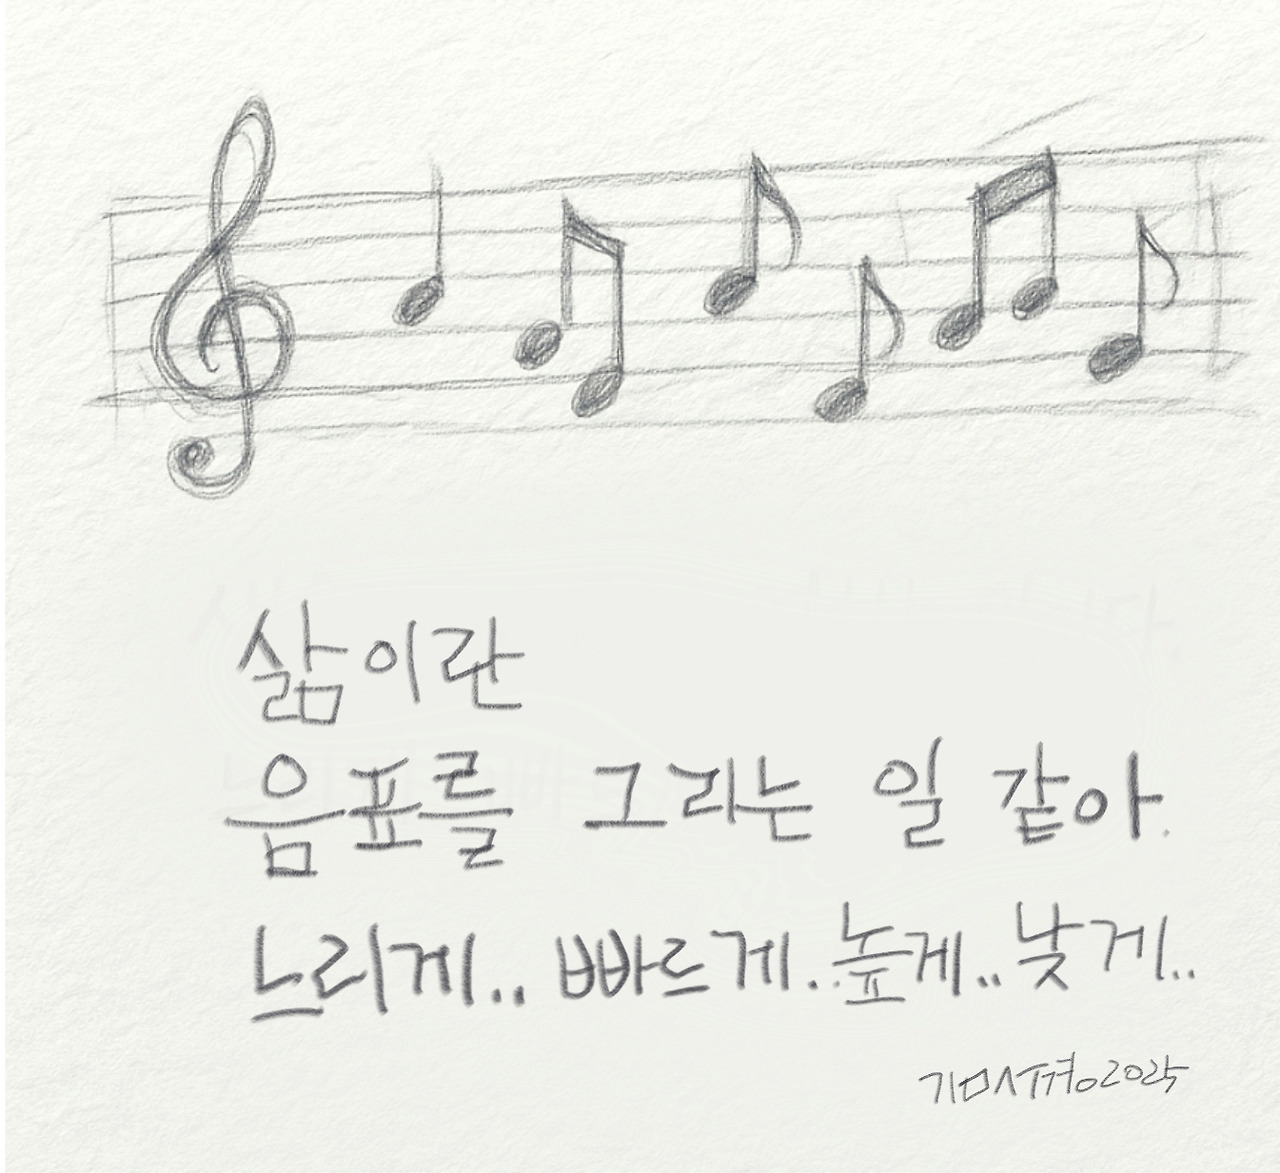 삶이란
음표를 그리는 일 같아.
느리게.. 빠르게.. 높게.. 낮게..
2025